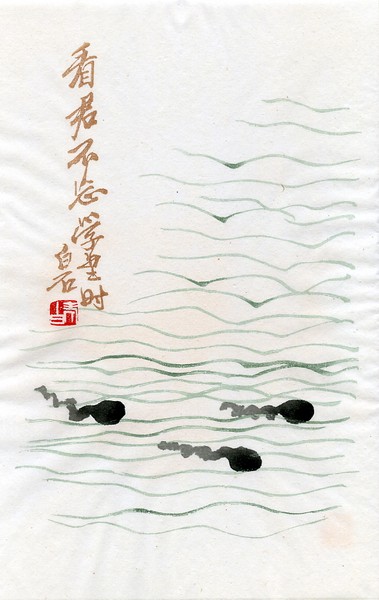 看君不忘学时
白石